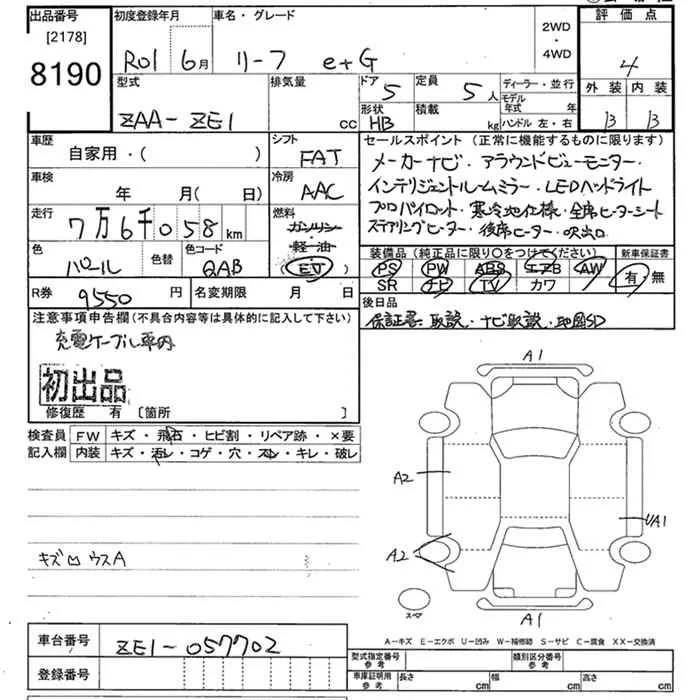 出品番号 初度登録年月 車名・グレード 2WD・4WD 評価点
[2178]
8190 R01 6月 リーフ e+G 4
型式 排気量 ドア 5 定員 5人 ディーラー・並行 外装 内装
モデル年式 年
ZAA-ZE1 cc 形状 HB 積載 kg ハンドル 左・右 B B
車歴 シフト セールスポイント (正常に機能するものに限ります)
自家用・( ) FAT メーカーナビ・アラウンドビューモニター・
車検 冷房 インテリジェントルームミラー・LEDヘッドライト
年 月( 日) AAC プロパイロット・寒冷地仕様・全席ヒーターシート
走行 燃料 ステアリングヒーター・後席ヒーター・吹出口
7万6千058km ガソリン
軽油
色 色替 色コード (EV) 装備品 (純正品に限り○をつけてください) 新車保証書
パール QAB PS PW ABS エアB AW 有 無
SR ナビ TV カワ
R券 9550円 名変期限 月 日 後日品
注意事項申告欄 (不具合内容等は具体的に記入して下さい) 保証書・取説・ナビ取説・地図SD
充電ケーブル車内
初出品
修復歴 有 [箇所 ]
検査員 FW キズ・飛石・ヒビ割・リペア跡・×要
記入欄 内装 キズ・汚レ・コゲ・穴・スレ・キレ・破レ
A1
A2
UA1
A2
キズ ウスA
スペア
A1
A-キズ E-エクボ U-凹み W-補修跡 S-サビ C-腐食 XX-交換済
車台番号 ZE1-057702
登録番号
型式指定番号 参考 類別区分番号 参考
車庫証明用 参考 長さ cm 幅 cm 高さ cm